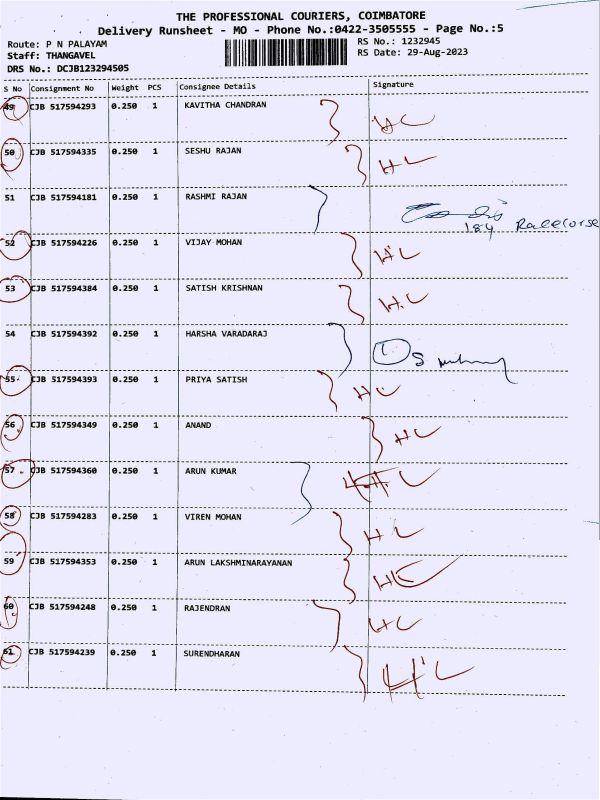 THE PROFESSIONAL COURIERS, COIMBATORE
Delivery Runsheet - MO - Phone No.:0422-3505555 - Page No.:5
Route: P N PALAYAM
RS No.: 1232945
Staff: THANGAVEL
RS Date: 29-Aug-2023
DRS No.: DCJB123294505
S No Consignment No Weight PCS Consignee Details Signature
49 CJB 517594293 0.250 1 KAVITHA CHANDRAN HC
50 CJB 517594335 0.250 1 SESHU RAJAN HL
51 CJB 517594181 0.250 1 RASHMI RAJAN
184 Racecorse
52 CJB 517594226 0.250 1 VIJAY MOHAN H'L
53 CJB 517594384 0.250 1 SATISH KRISHNAN H.C
54 CJB 517594392 0.250 1 HARSHA VARADARAJ
55 CJB 517594393 0.250 1 PRIYA SATISH HC
56 CJB 517594349 0.250 1 ANAND HC
57 CJB 517594360 0.250 1 ARUN KUMAR
58 CJB 517594283 0.250 1 VIREN MOHAN HL
59 CJB 517594353 0.250 1 ARUN LAKSHMINARAYANAN HC
60 CJB 517594248 0.250 1 RAJENDRAN HC
61 CJB 517594239 0.250 1 SURENDHARAN H'L